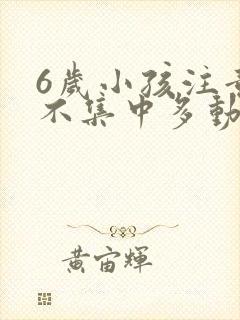 6歲小孩注意
不集中多動
黃宙輝